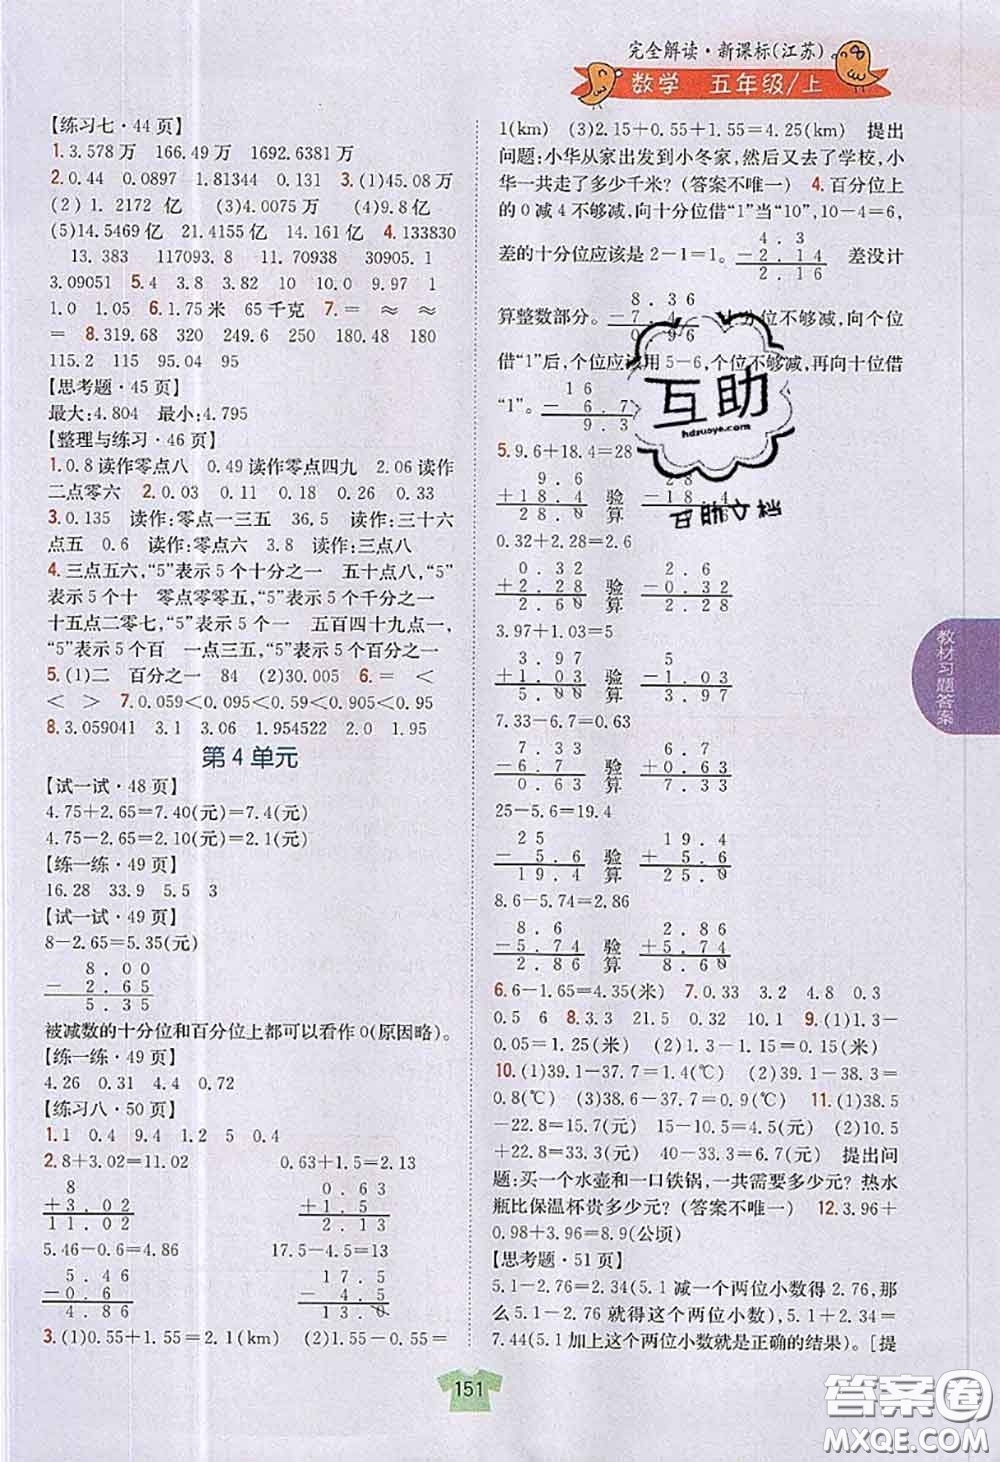 完全解读·新课标(江苏)
数学 五年级/上
【练习七·44页】
1.3.578万 166.49万 1692.6381万
2.0.44 0.0897 1.81344 0.131 3.(1)45.08万
(2)1.2172亿 (3)4.0075万 (4)9.8亿
(5)14.5469亿 21.4155亿 14.161亿 4.133830
13.383 117093.8 11.70938 30905.1
3.09051 5.4 3.8 3.82 10 10.0 9.97 1
1.0 1.05 6.1.75米 65千克 7.= ≈ ≈
= 8.319.68 320 249.6 250 180.48 180
115.2 115 95.04 95
【思考题·45页】
最大:4.804 最小:4.795
【整理与练习·46页】
1.0.8读作零点八 0.49读作零点四九 2.06读作
二点零六 2.0.03 0.11 0.18 0.26 0.33
3.0.135 读作:零点一三五 36.5 读作:三十六
点五 0.6 读作:零点六 3.8 读作:三点八
4.三点五六,“5”表示5个十分之一 五十点八,“5”
表示5个十 零点零零五,“5”表示5个千分之一
十五点二零七,“5”表示5个一 五百四十九点一,
“5”表示5个百 一点三五,“5”表示5个百分之一
5.(1)二 百分之一 84 (2)30.005 6.= <
< > 7.0.059<0.095<0.59<0.905<0.95
8.3.059041 3.1 3.06 1.954522 2.0 1.95
第4单元
【试一试·48页】
4.75+2.65=7.40(元)=7.4(元)
4.75-2.65=2.10(元)=2.1(元)
【练一练·49页】
16.28 33.9 5.5 3
【试一试·49页】
8-2.65=5.35(元)
8.00
- 2.65
5.35
被减数的十分位和百分位上都可以看作0(原因略)。
【练一练·49页】
4.26 0.31 4.4 0.72
【练习八·50页】
1.1 0.4 9.4 1.2 5 0.4
2.8+3.02=11.02 0.63+1.5=2.13
8 0.63
+3.02 +1.5
11.02 2.13
5.46-0.6=4.86 17.5-4.5=13
5.46 17.5
-0.6 -4.5
4.86 13.0
3.(1)0.55+1.55=2.1(km) (2)1.55-0.55=
1(km) (3)2.15+0.55+1.55=4.25(km) 提出
问题:小华从家出发到小冬家,然后又去了学校,小
华一共走了多少千米?(答案不唯一) 4.百分位上
的0减4不够减,向十分位借“1”当“10”,10-4=6,
4.3
差的十分位应该是2-1=1。 -2.14 差没计
2.16
8.36
算整数部分。 -7.4 十分位不够减,向个位
0.96
借“1”后,个位应该用5-6,个位不够减,再向十位借
16
“1”。 - 6.7
9.3
5.9.6+18.4=28
9.6 28
+18.4 验 -18.4
28.0 算
0.32+2.28=2.6
0.32 2.6
+2.28 验 -0.32
2.60 算 2.28
3.97+1.03=5
3.97 5
+1.03 验 -1.03
5.00 算 3.97
7.33-6.7=0.63
7.33 6.7
-6.7 验 +0.63
0.63 算 7.33
25-5.6=19.4
25 19.4
- 5.6 验 + 5.6
19.4 算 25.0
8.6-5.74=2.86
8.6 2.86
-5.74 验 +5.74
2.86 算 8.60
6.6-1.65=4.35(米) 7.0.33 3.2 4.8 0.3
0.5 6 8.3.3 21.5 0.32 10.1 9.(1)1.3-
0.05=1.25(米) (2)1.3-0.5=0.8(米)
10.(1)39.1-37.7=1.4(℃) (2)39.1-38.3=
0.8(℃) (3)37.7-36.8=0.9(℃) 11.(1)38.5
-22.8=15.7(元) 15-10.5=4.5(元) (2)10.5
+22.8=33.3(元) 40-33.3=6.7(元) 提出问
题:买一个水壶和一口铁锅,一共需要多少元? 热水
瓶比保温杯贵多少元?(答案不唯一) 12.3.96+
0.98+3.96=8.9(公顷)
【思考题·51页】
5.1-2.76=2.34(5.1减一个两位小数得2.76,那
么5.1-2.76就得这个两位小数),5.1+2.34=
7.44(5.1加上这个两位小数就是正确的结果)。[提
教材习题答案
151
互助
hdzuoye.com
互助文档
答案圈
MXQE.COM